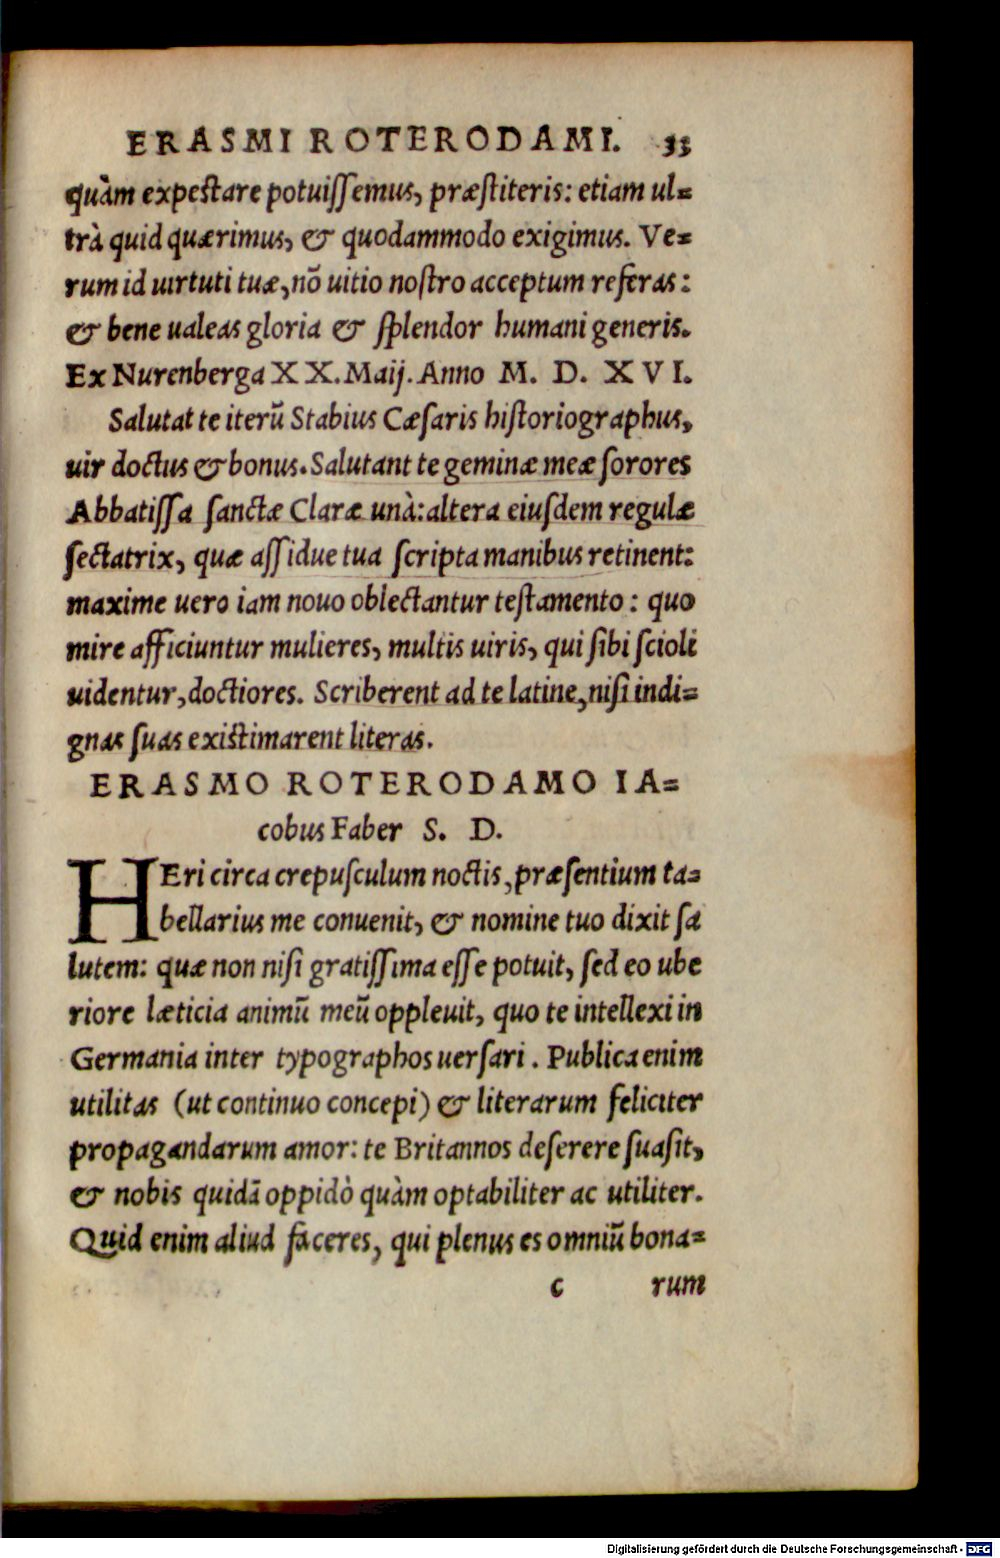 ERASMI ROTERODAMI. 33
quàm expectare potuiſſemus, præſtiteris: etiam ul=
trà quid quærimus, & quodammodo exigimus. Ve=
rum id uirtuti tuæ, nõ uitio noſtro acceptum referas:
& bene ualeas gloria & ſplendor humani generis.
Ex Nurenberga XX. Maij. Anno M. D. XVI.
Salutat te iterũ Stabius Cæſaris hiſtoriographus,
uir doctus & bonus. Salutant te geminæ meæ ſorores
Abbatiſſa ſanctæ Claræ unà: altera eiuſdem regulæ
ſectatrix, quæ aſſidue tua ſcripta manibus retinent:
maxime uero iam nouo oblectantur teſtamento: quo
mire afficiuntur mulieres, multis uiris, qui ſibi ſcioli
uidentur, doctiores. Scriberent ad te latine, niſi indi=
gnas ſuas exiſtimarent literas.
ERASMO ROTERODAMO IA=
cobus Faber S. D.
HEri circa crepuſculum noctis, præſentium ta=
bellarius me conuenit, & nomine tuo dixit ſa
lutem: quæ non niſi gratiſſima eſſe potuit, ſed eo ube
riore læticia animũ meũ oppleuit, quo te intellexi in
Germania inter typographos uerſari. Publica enim
utilitas (ut continuo concepi) & literarum feliciter
propagandarum amor: te Britannos deſerere ſuaſit,
& nobis quidã oppidò quàm optabiliter ac utiliter.
Quid enim aliud faceres, qui plenus es omniũ bona=
c rum
Digitalisierung gefördert durch die Deutsche Forschungsgemeinschaft - DFG